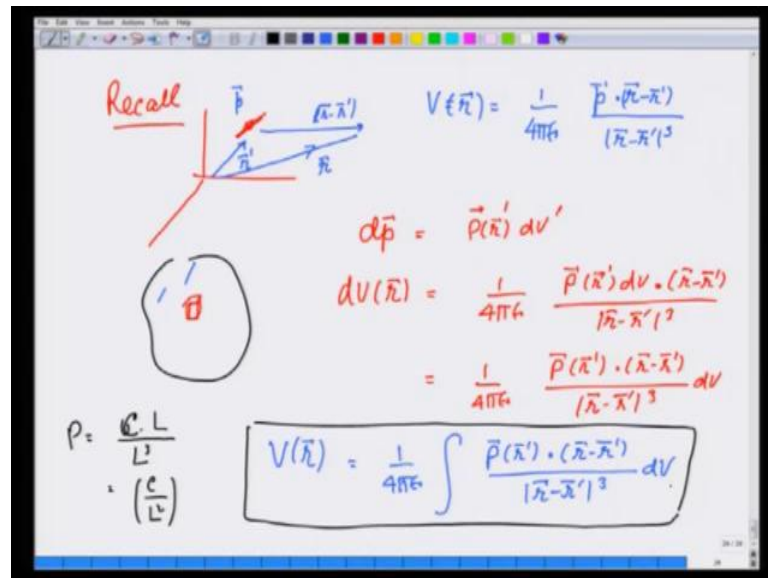 File Edit View Insert Actions Tools Help
Recall
p⃗
(r̄-r̄')
r̄'
r̄
V(r̄) = 1/4πε₀ p̄·(r̄-r̄')/|r̄-r̄'|³
dp⃗ = P⃗(r̄)' dv'
dV(r̄) = 1/4πε₀ P̄(r̄')dv·(r̄-r̄')/|r̄-r̄'|³
= 1/4πε₀ P̄(r̄')·(r̄-r̄')/|r̄-r̄'|³ dv
P = C·L/L³
= (C/L²)
V(r̄) = 1/4πε₀ ∫ P̄(r̄')·(r̄-r̄')/|r̄-r̄'|³ dV